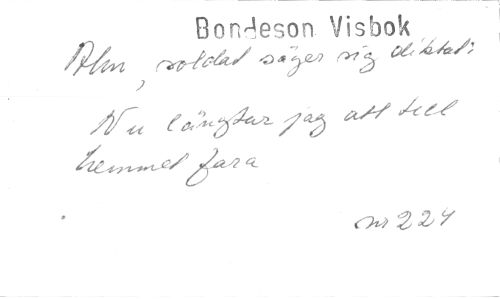 Bondeson Visbok
Alm, soldat säger sig diktat:
Nu längtar jag att till
hemmet fara
nr 224